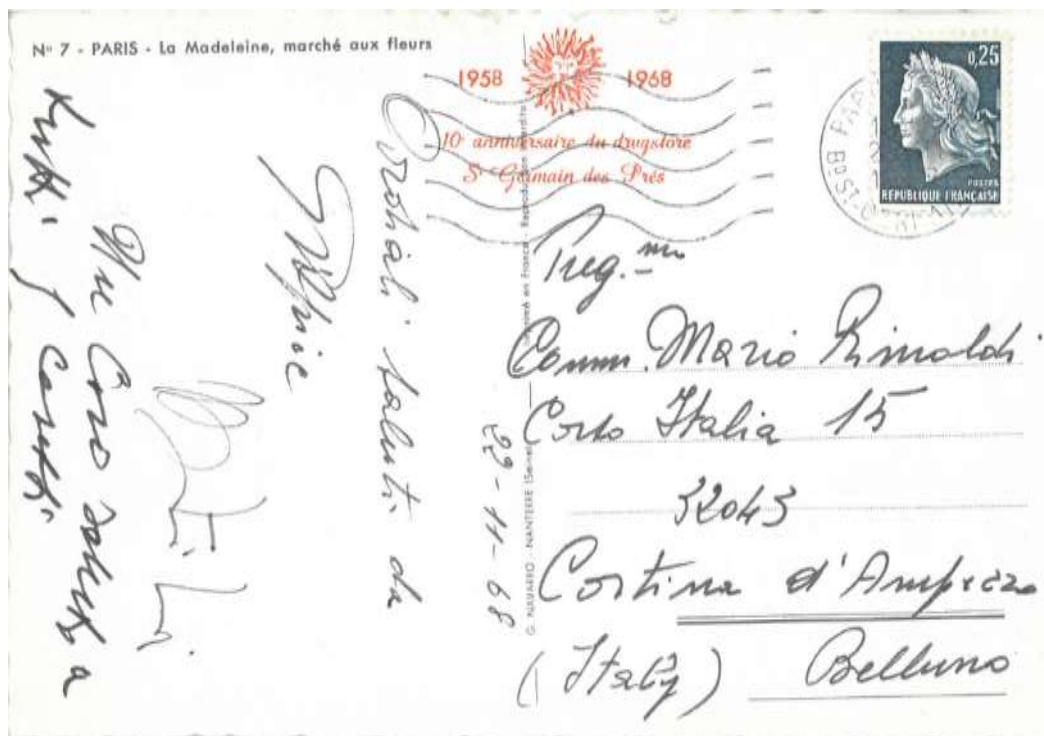 Nº 7 - PARIS - La Madeleine, marché aux fleurs
1958 1968
10e anniversaire du drugstore
St Germain des Prés
0,25
POSTES
REPUBLIQUE FRANÇAISE
PARIS
Bd ST-G
22-11-68
Cordiali saluti da
Un caro saluto a
tutti
G. NAVARRO - NANTERRE (Seine) - Imprimé en France - Reproduction interdite
Preg.mo
Comm. Mario Rimoldi
Corso Italia 15
32043
Cortina d'Ampezzo
(Italy) Belluno